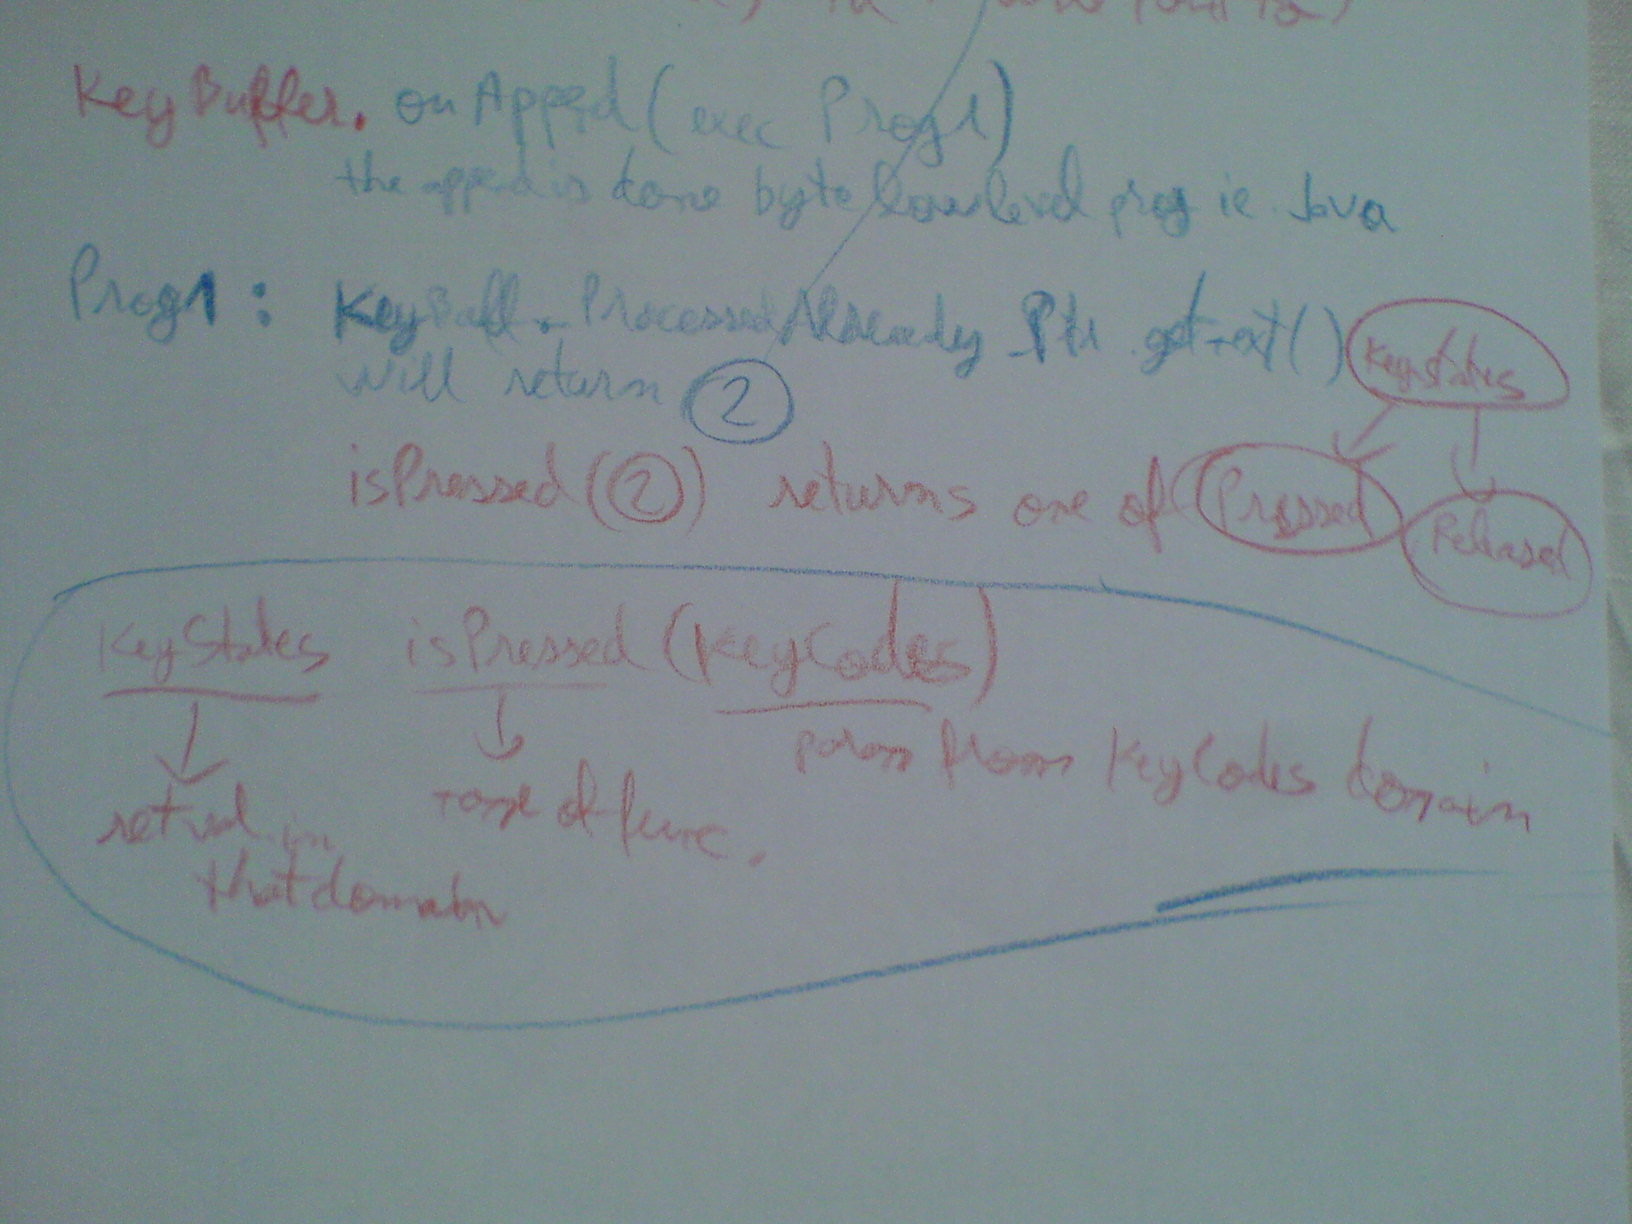 KeyBuffer. on Append (exec Prog1)
the append is done by the lowlevel prog ie. Java
Prog1 : KeyBuff. ProcessedAlready_Ptr.getnext()
will return 2
KeyStates
isPressed (2) returns one of Pressed Released
KeyStates isPressed (KeyCodes)
param from KeyCodes domain
retval in name of func.
that domain